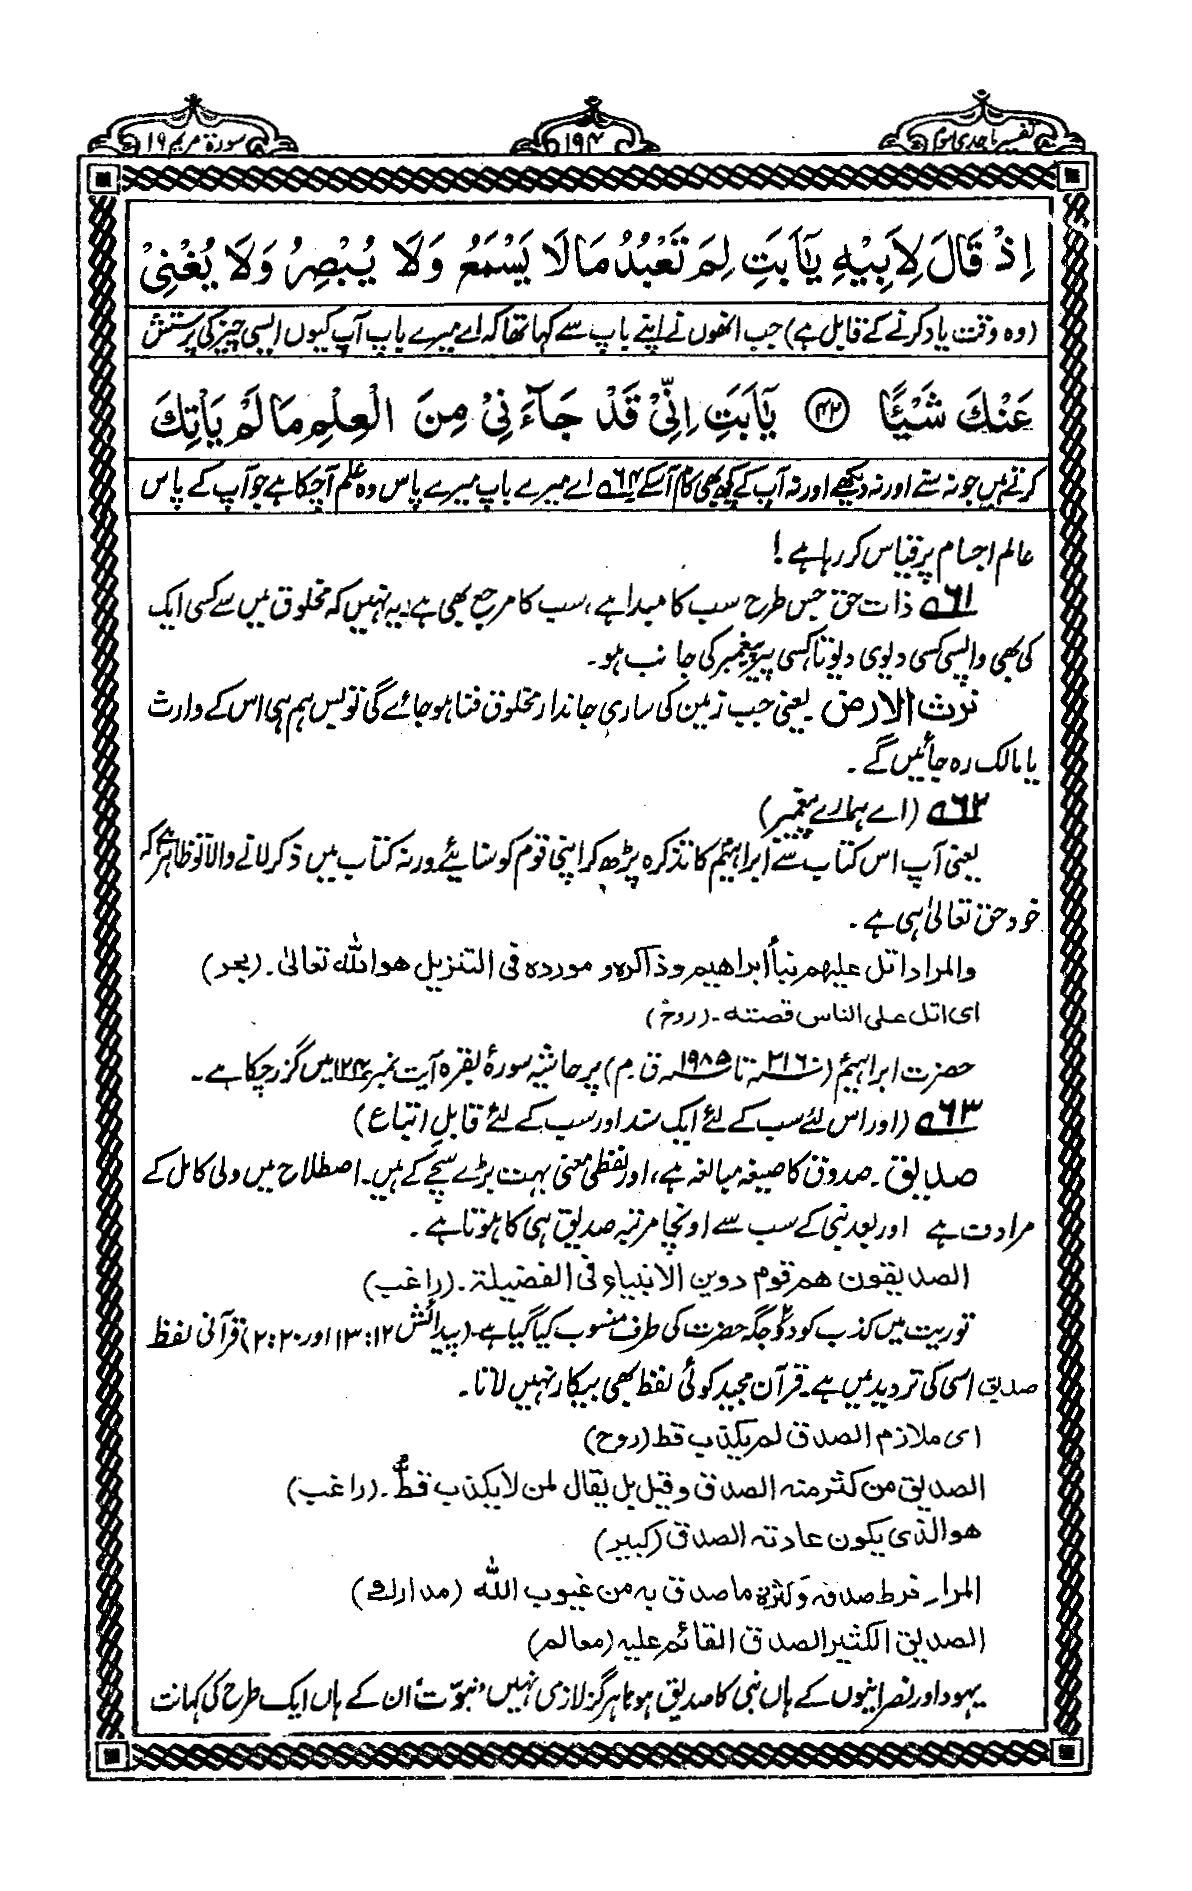 تفسیر ماجدی سوم
۱۹۴
سورۃ مریم ۱۹
اِذْ قَالَ لِاَبِیْهِ یٰۤاَبَتِ لِمَ تَعْبُدُ مَا لَا یَسْمَعُ وَلَا یُبْصِرُ وَلَا یُغْنِیْ
(وہ وقت یاد کرنے کے قابل ہے) جب انھوں نے اپنے باپ سے کہا تھا کہ اے میرے باپ آپ کیوں ایسی چیز کی پرستش
عَنْكَ شَیْئًا ﴿۴۲﴾ یٰۤاَبَتِ اِنِّیْ قَدْ جَآءَنِیْ مِنَ الْعِلْمِ مَا لَمْ یَاْتِكَ
کرتے ہیں جو نہ سنے اور نہ دیکھے اور نہ آپ کے کچھ بھی کام آسکے ۶۴؎ اے میرے باپ میرے پاس وہ علم آچکا ہے جو آپ کے پاس
عالم اجسام پر قیاس کر رہا ہے!
۶۱؎ ذات حق جس طرح سب کا مبدا ہے، سب کا مرجع بھی ہے، یہ نہیں کہ مخلوق میں سے کسی ایک
کی بھی واپسی کسی دیوی دیوتا، کسی پیر پیغمبر کی جانب ہو۔
نرث الارض یعنی جب زمین کی ساری جاندار مخلوق فنا ہو جائے گی تو بس ہم ہی اس کے وارث
یا مالک رہ جائیں گے۔
۶۲؎ (اے ہمارے پیغمبر)
یعنی آپ اس کتاب سے ابراہیمؑ کا تذکرہ پڑھ کر اپنی قوم کو سنائیے ورنہ کتاب میں ذکر لانے والا تو ظاہر ہے کہ
خود حق تعالیٰ ہی ہے۔
والمراد اتل علیہم نبأ ابراھیم وذاکرہ و موردہ فی التنزیل ھو اللہ تعالیٰ۔ (بحر)
ای اتل علی الناس قصتہ۔ (روح)
حضرت ابراہیمؑ (۲۱۶۰؁ تا ۱۹۸۵؁ ق۔م) پر حاشیہ سورۂ بقرہ آیت نمبر ۱۲۴ میں گزر چکا ہے۔
۶۳؎ (اور اس لئے سب کے لئے ایک سند اور سب کے لئے قابل اتباع)
صدیق۔ صدوق کا صیغہ مبالغہ ہے، اور لفظی معنی بہت بڑے سچے کے ہیں۔ اصطلاح میں ولی کامل کے
مرادت ہے اور بعد نبی کے سب سے اونچا مرتبہ صدیق ہی کا ہوتا ہے۔
الصدیقون ھم قوم دوین الانبیاء فی الفضیلۃ۔ (راغب)
توریت میں کذب کو دو جگہ حضرت کی طرف منسوب کیا گیا ہے۔ (پیدائش ۱۲: ۱۳ اور ۲۰: ۲) قرآنی لفظ
صدیق اسی کی تردید میں ہے۔ قرآن مجید کوئی لفظ بھی بیکار نہیں لاتا۔
ای ملازم الصدق لم یکذب قط (روح)
الصدیق من کثر منہ الصدق وقیل بل یقال لمن لا یکذب قطُّ۔ (راغب)
ھو الذی یکون عادتہ الصدق (کبیر)
المراد فرط صدقہ وکثرۃ ما صدق بہ من غیوب اللہ (مدارک)
الصدیق الکثیر الصدق القائم علیہ (معالم)
یہود اور نصرانیوں کے ہاں نبی کا صدیق ہونا ہرگز لازمی نہیں، نبوّت ان کے ہاں ایک طرح کی کہانت